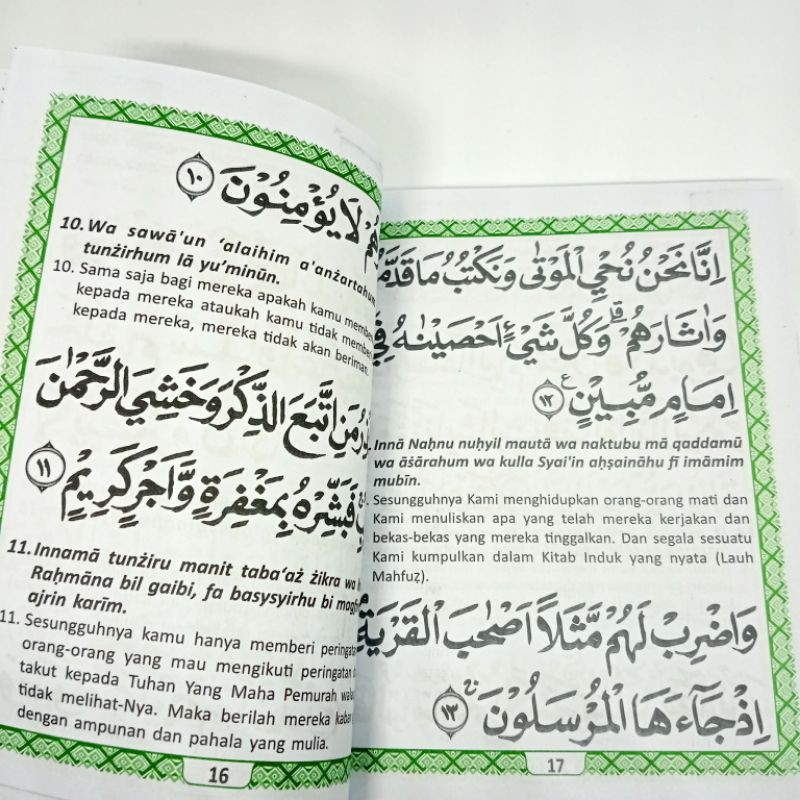 لَا يُؤْمِنُوْنَ ١٠
10. Wa sawā'un 'alaihim a'anżartahum
tunżirhum lā yu'minūn.
10. Sama saja bagi mereka apakah kamu
kepada mereka ataukah kamu tidak
kepada mereka, mereka tidak akan beriman.
مَنِ اتَّبَعَ الذِّكْرَ وَخَشِيَ الرَّحْمٰنَ
فَبَشِّرْهُ بِمَغْفِرَةٍ وَّاَجْرٍ كَرِيْمٍ ١١
11. Innamā tunżiru manit taba'aż żikra wa
Raḥmāna bil gaibi, fa basysyirhu bi
ajrin karīm.
11. Sesungguhnya kamu hanya memberi
orang-orang yang mau mengikuti peringatan
takut kepada Tuhan Yang Maha Pemurah
tidak melihat-Nya. Maka berilah mereka
dengan ampunan dan pahala yang mulia.
16
اِنَّا نَحْنُ نُحْيِ الْمَوْتٰى وَنَكْتُبُ مَا قَدَّمُ
وَاٰثَارَهُمْۗ وَكُلَّ شَيْءٍ اَحْصَيْنٰهُ فِيْ
اِمَامٍ مُّبِيْنٍ ࣖ ١٢
Innā Naḥnu nuḥyil mautā wa naktubu mā qaddamū
wa āṡārahum wa kulla Syai'in aḥṣaināhu fi imāmim
mubīn.
Sesungguhnya Kami menghidupkan orang-orang mati dan
Kami menuliskan apa yang telah mereka kerjakan dan
bekas-bekas yang mereka tinggalkan. Dan segala sesuatu
Kami kumpulkan dalam Kitab Induk yang nyata (Lauh
Mahfuẓ).
وَاضْرِبْ لَهُمْ مَّثَلًا اَصْحٰبَ الْقَرْيَةِۘ
اِذْ جَاۤءَهَا الْمُرْسَلُوْنَۚ ١٣
17